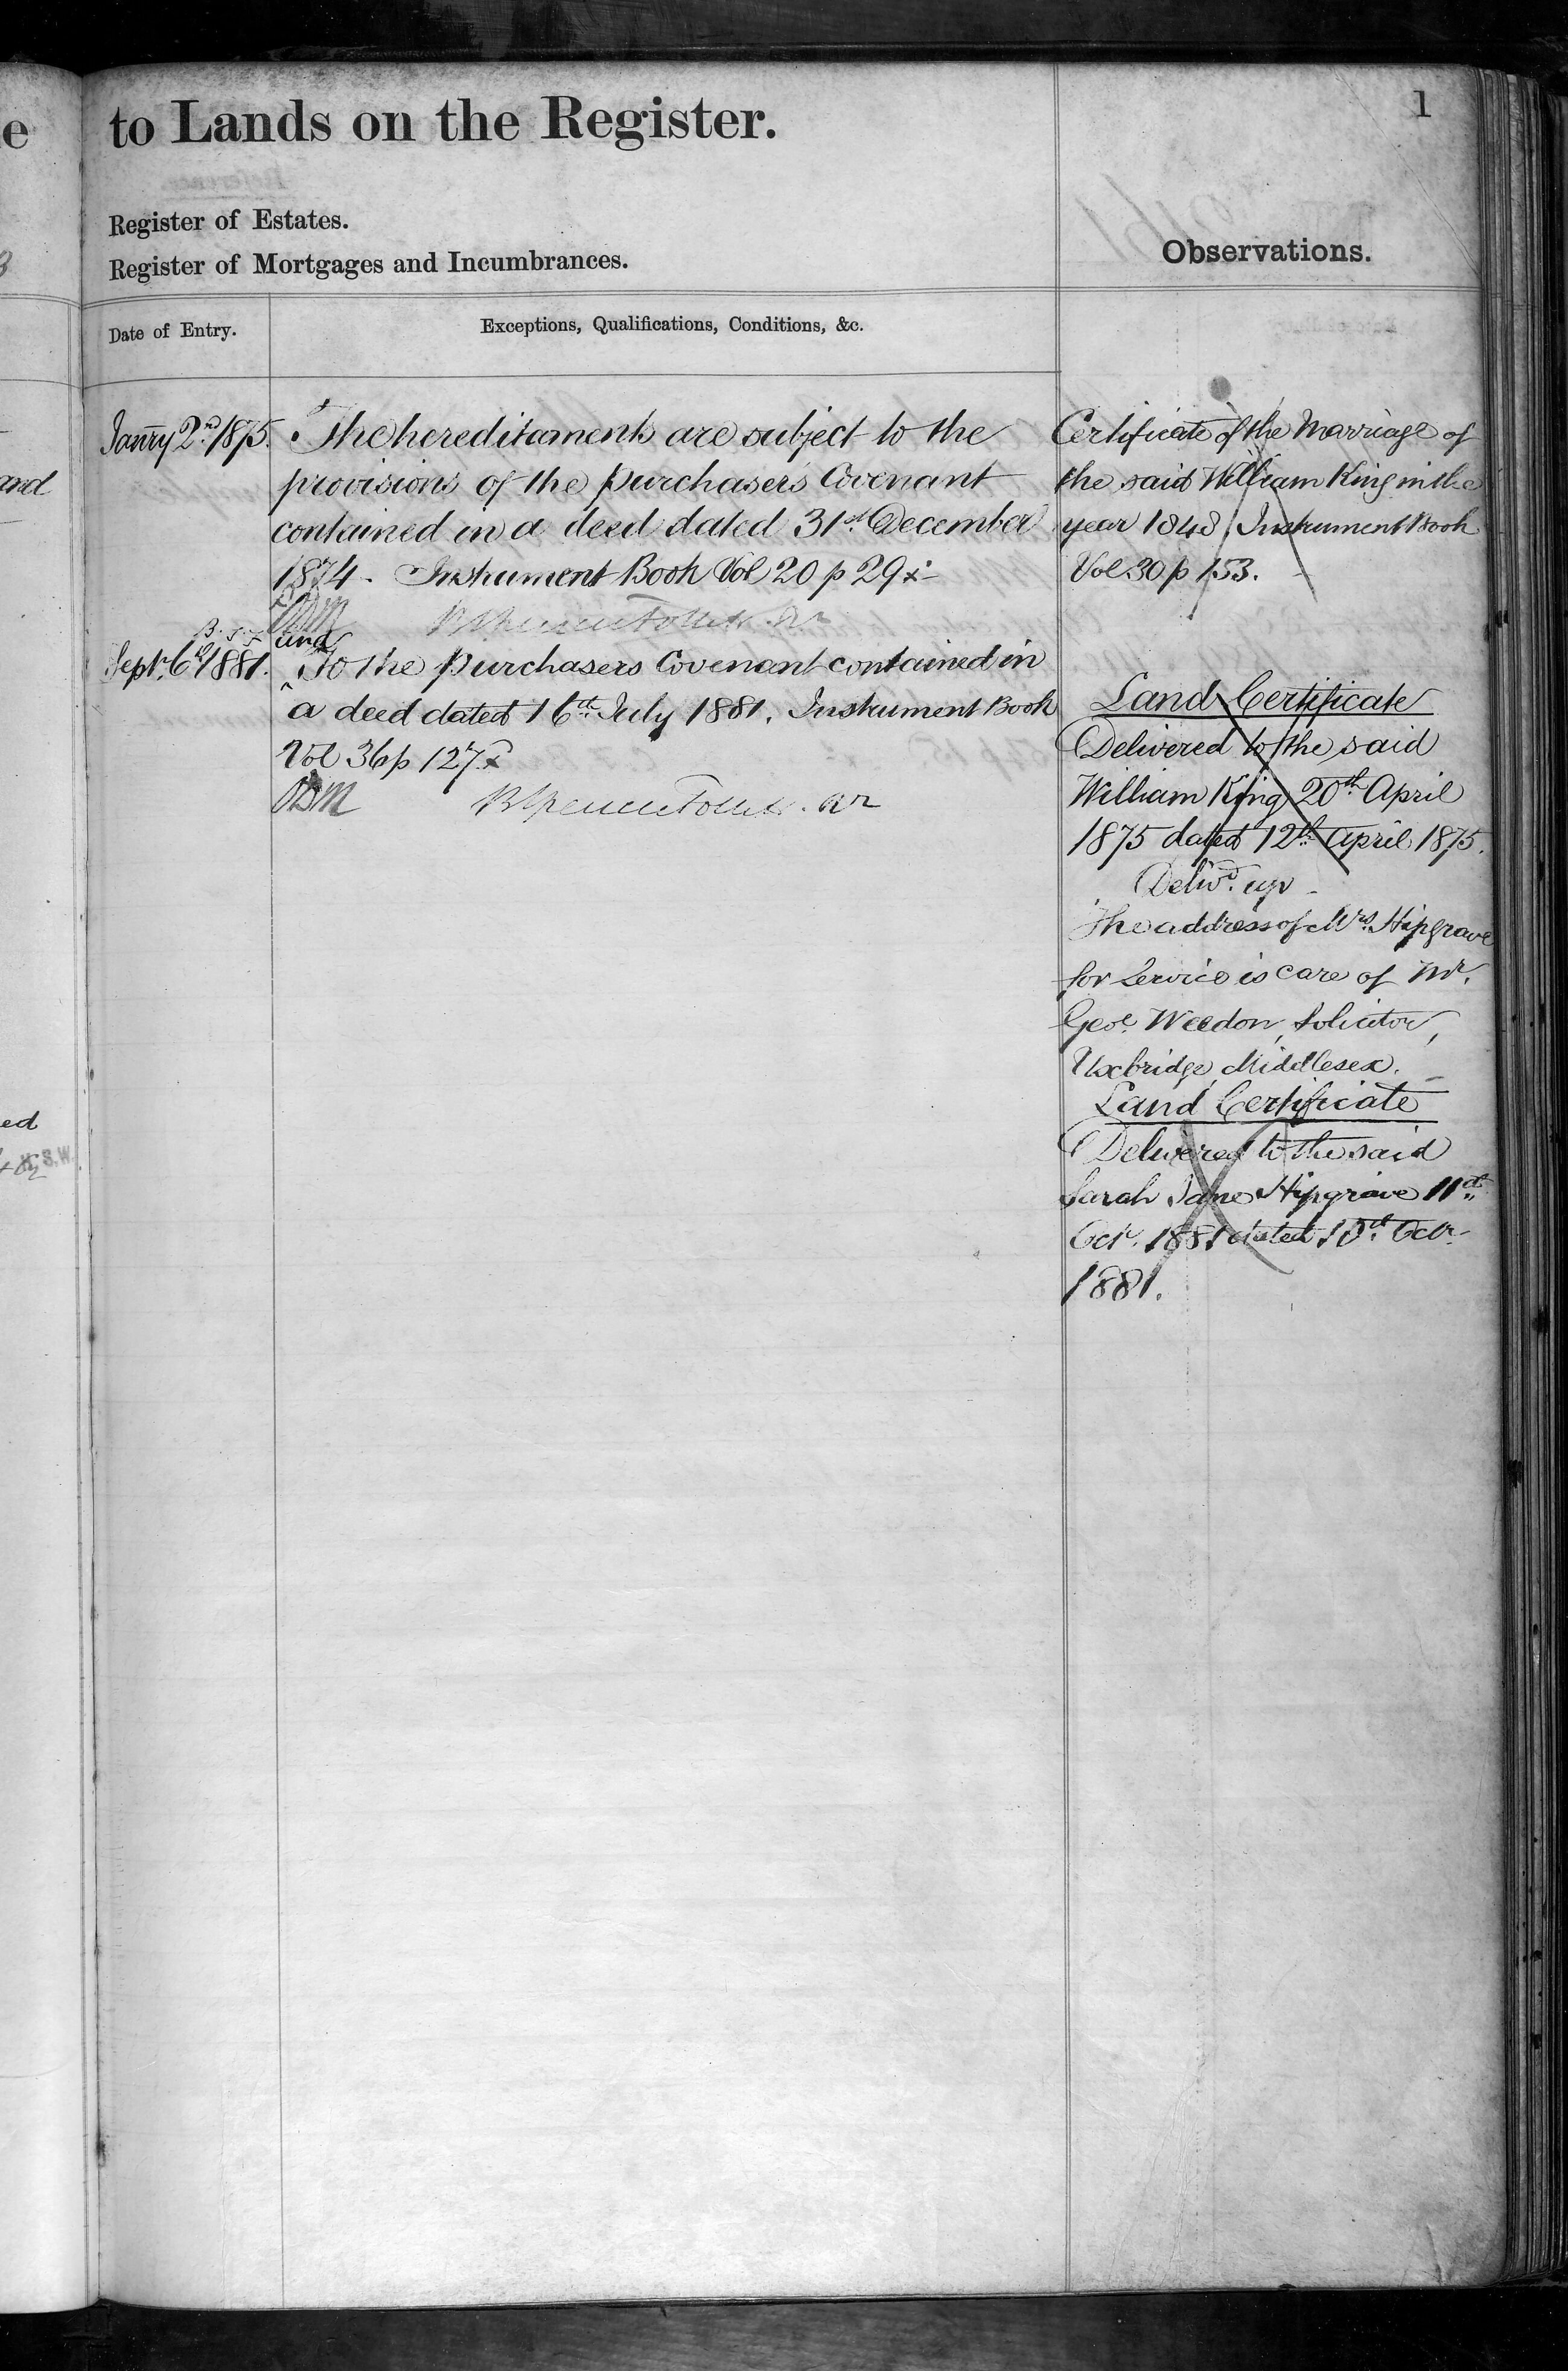 to Lands on the Register.
1
Register of Estates.
Register of Mortgages and Incumbrances.
Observations.
Date of Entry.
Exceptions, Qualifications, Conditions, &c.
Janry 2nd 1875.
The hereditaments are subject to the
provisions of the purchaser's Covenant
contained in a deed dated 31st December
1874 - Instrument Book Vol 20 p 29
and
Septr. 6th 1881.
To the purchasers Covenant contained in
a deed dated 16th July 1881. Instrument Book
Vol 36 p 127
Certificate of the Marriage of
the said William King in the
year 1848 Instrument Book
Vol 30 p 153.
Land Certificate
Delivered to the said
William King 20th April
1875 dated 12th April 1875.
Delivd. up
The address of Mrs. Hipgrave
for Service is care of Mr.
Geoe. Weedon, Solicitor,
Uxbridge, Middlesex.
Land Certificate
Delivered to the said
Sarah Jane Hipgrave 11th
Octr. 1881 dated 10th Octr.
1881.
and
ed
S.W.